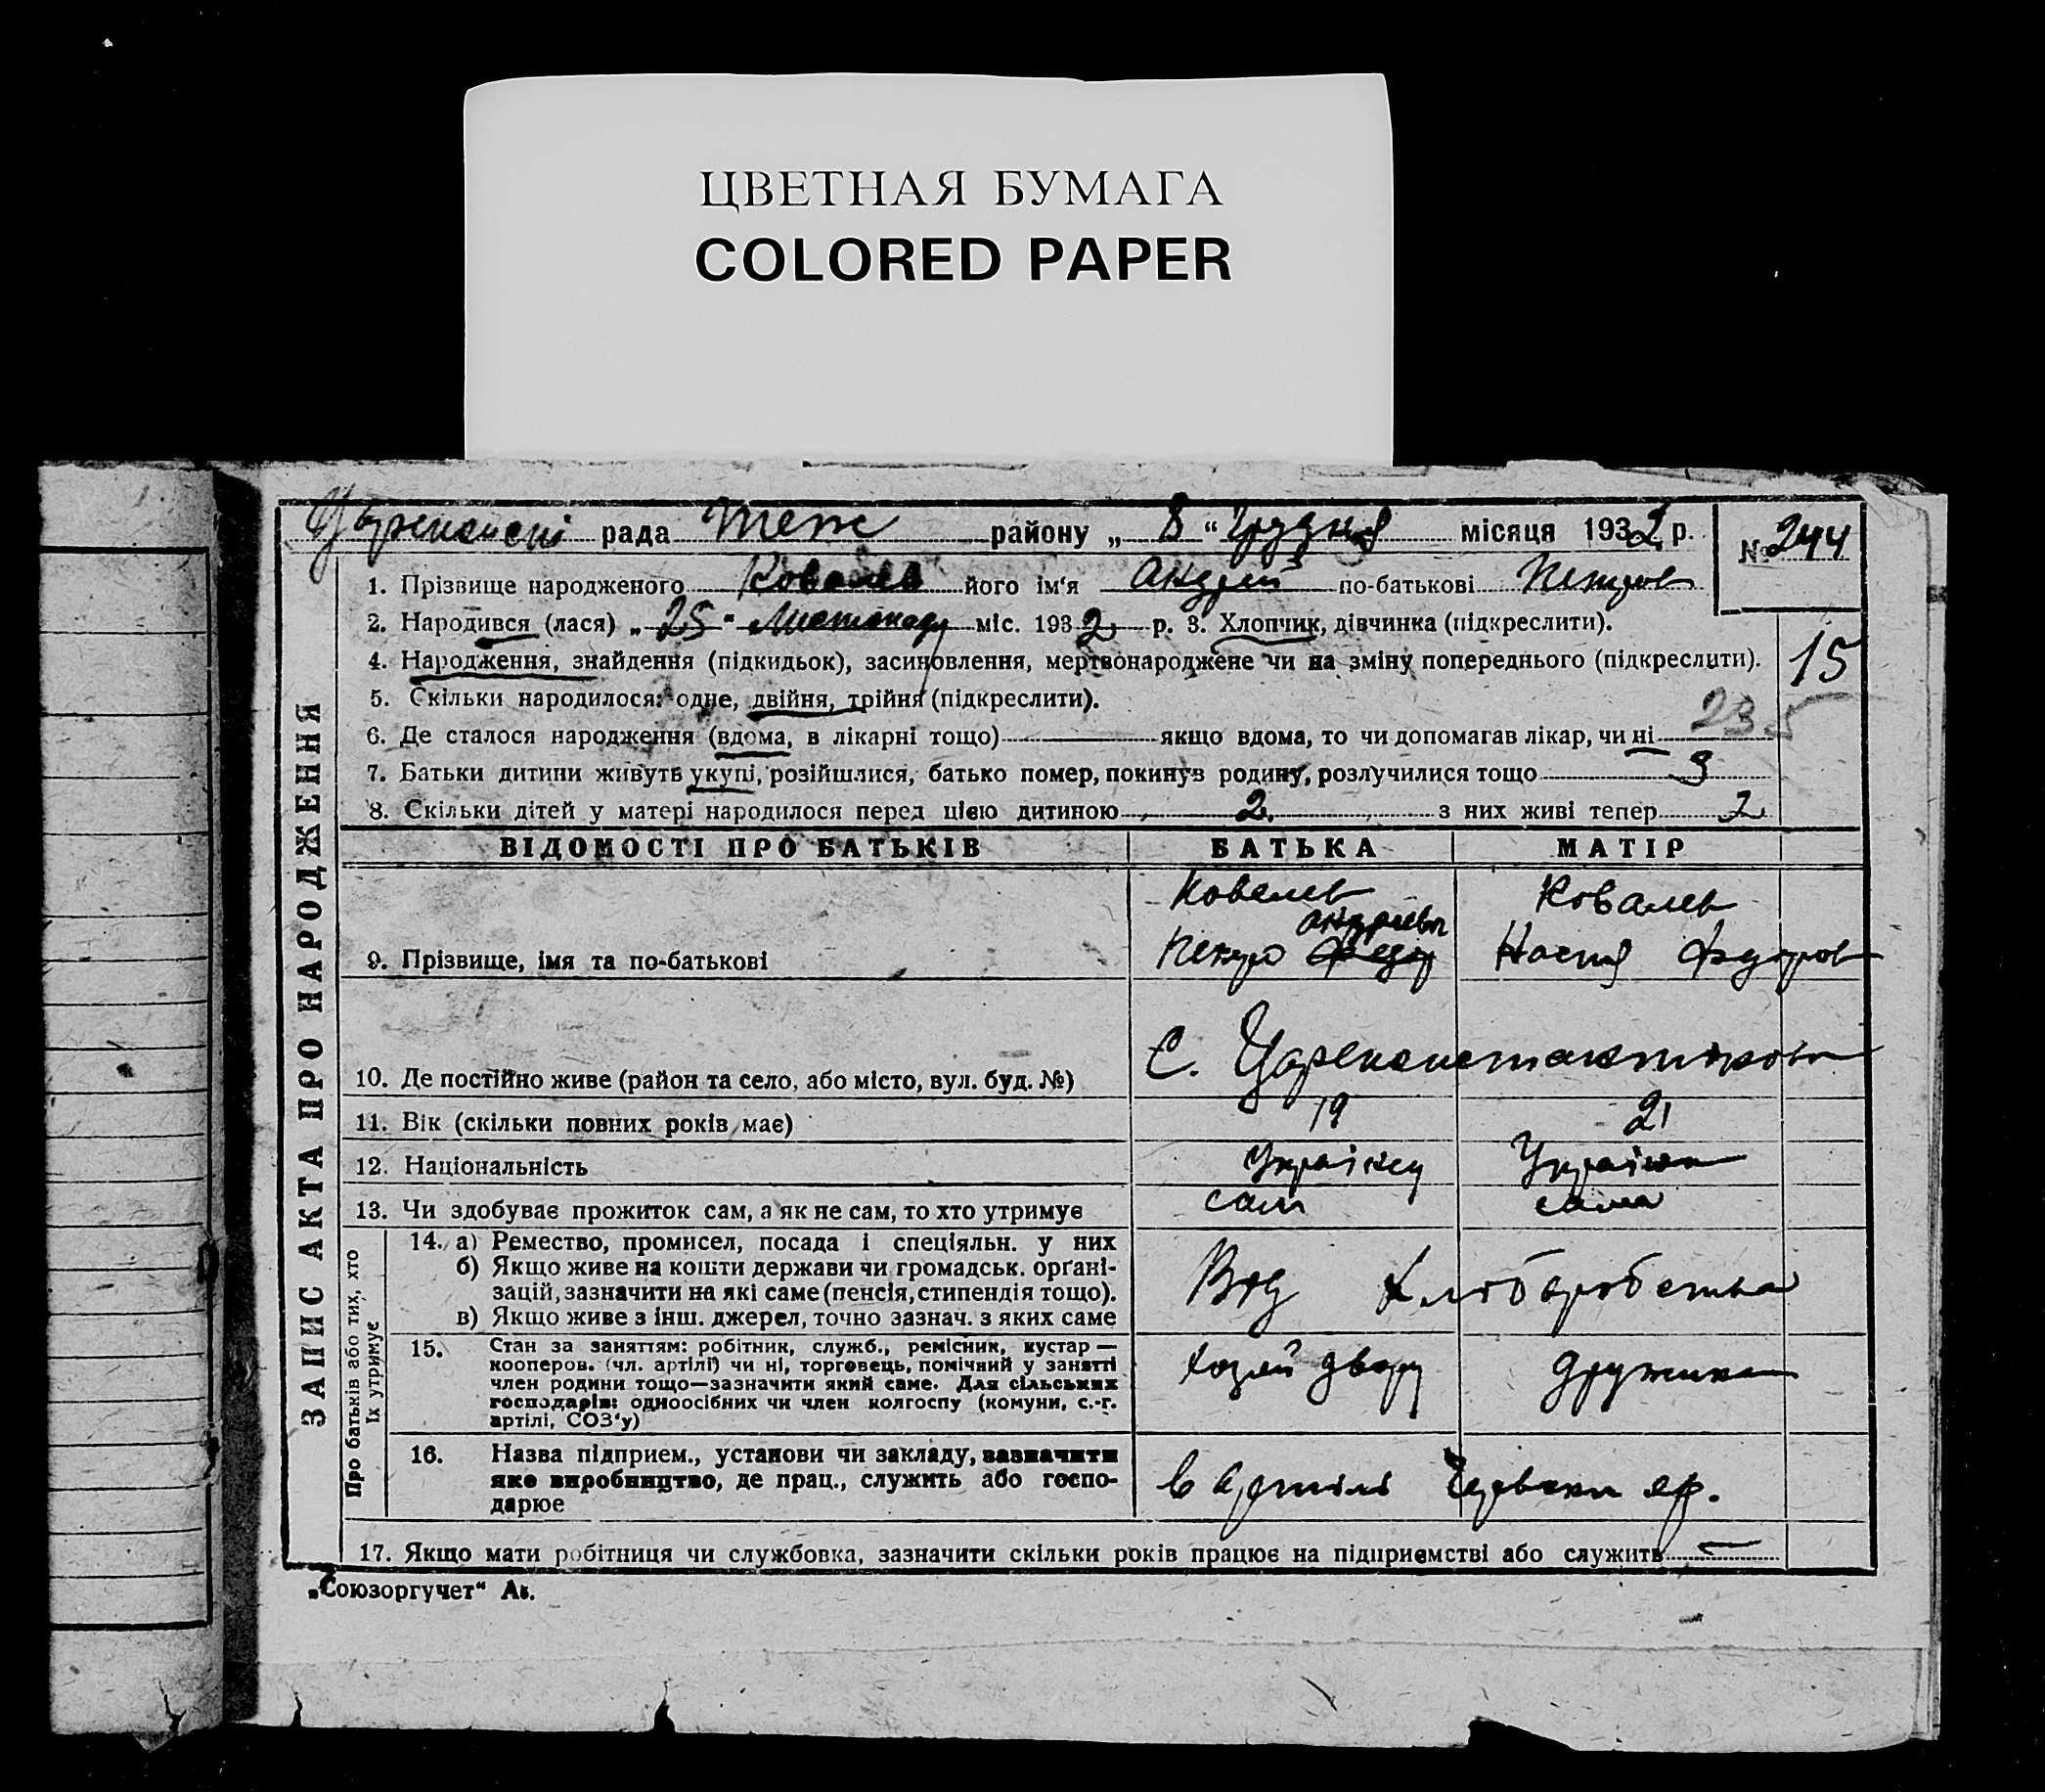 ЦВЕТНАЯ БУМАГА
COLORED PAPER
рада Теж району „ 8 “ Грудня місяця 1932 р. № 244
1. Прізвище народженого Ковалев його ім‘я Андрій по-батькові Петров
2. Народився (лася) „ 25 “ Листопаду міс. 1932 р. 3. Хлопчик, дівчинка (підкреслити).
15
4. Народження, знайдення (підкидьок), засиновлення, мертвонароджене чи на зміну попереднього (підкреслити).
5. Скільки народилося: одне, двійня, трійня (підкреслити).
235
6. Де сталося народження (вдома, в лікарні тощо) якщо вдома, то чи допомагав лікар, чи ні
7. Батьки дитини живуть укупі, розійшлися, батько помер, покинув родину, розлучилися тощо
8. Скільки дітей у матері народилося перед цією дитиною 2 з них живі тепер 2
ВІДОМОСТІ ПРО БАТЬКІВ БАТЬКА МАТІР
Ковалев Ковалев
9. Прізвище, імя та по-батькові Петро Настя
10. Де постійно живе (район та село, або місто, вул. буд. №) С. Цареконстантинов
11. Вік (скільки повних років має) 19 21
12. Національність Українец Українка
13. Чи здобуває прожиток сам, а як не сам, то хто утримує сам сама
14. а) Ремество, промисел, посада і спеціяльн. у них
б) Якщо живе на кошти держави чи громадськ. орґані-
зацій, зазначити на які саме (пенсія, стипендія тощо).
в) Якщо живе з інш. джерел, точно зазнач. з яких саме
Від Хліборобства
15. Стан за заняттям: робітник, служб., ремісник, кустар —
кооперов. (чл. артілі) чи ні, торговець, помічний у занятті
член родини тощо—зазначити який саме. Для сільських
господарів: одноосібних чи член колгоспу (комуни, с.-г.
артілі, СОЗ‘у)
двору дружина
16. Назва підприєм., установи чи закладу, зазначити
яке виробництво, де прац., служить або госпо-
дарюе
в Артілі
17. Якщо мати робітниця чи службовка, зазначити скільки років працює на підприємстві або служить —
ЗАПИС АКТА ПРО НАРОДЖЕННЯ
Про батьків або тих, хто
їх утримує
„Союзоргучет“